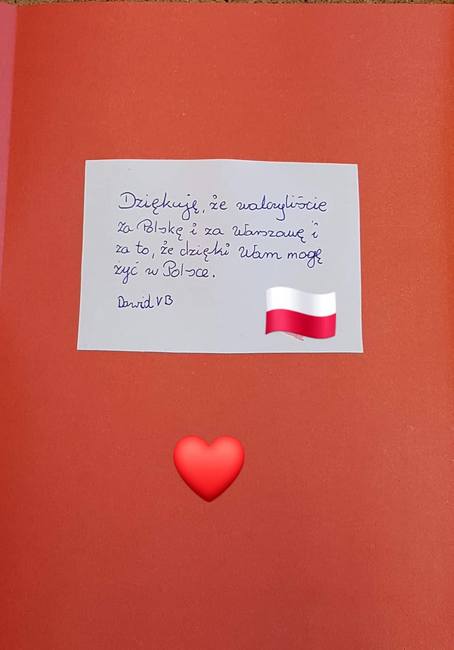 Dziękuję, że walczyliście
za Polskę i za Warszawę i
za to, że dzięki Wam mogę
żyć w Polsce.
Dawid VB